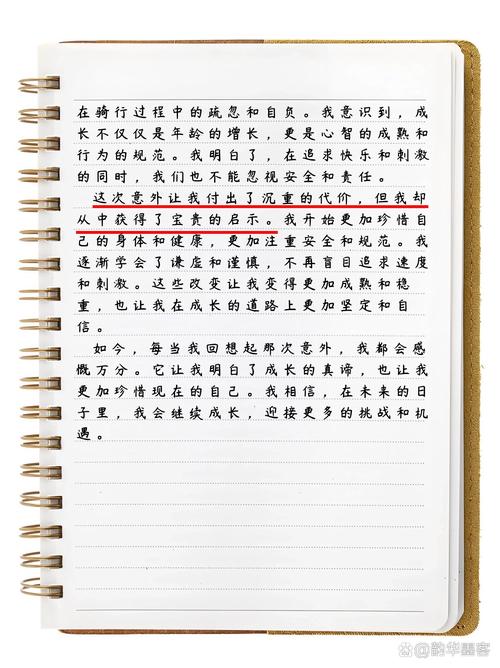 在骑行过程中的疏忽和自负。我意识到，成
长不仅仅是年龄的增长，更是心智的成熟和
行为的规范。我明白了，在追求快乐和刺激
的同时，我们也不能忽视安全和责任。
这次意外让我付出了沉重的代价，但我却
从中获得了宝贵的启示。我开始更加珍惜自
己的身体和健康，更加注重安全和规范。我
逐渐学会了谦虚和谨慎，不再盲目追求速度
和刺激。这些改变让我变得更加成熟和稳
重，也让我在成长的道路上更加坚定和自
信。
如今，每当我回想起那次意外，我都会感
慨万分。它让我明白了成长的真谛，也让我
更加珍惜现在的自己。我相信，在未来的日
子里，我会继续成长，迎接更多的挑战和机
遇。
@韵华墨客